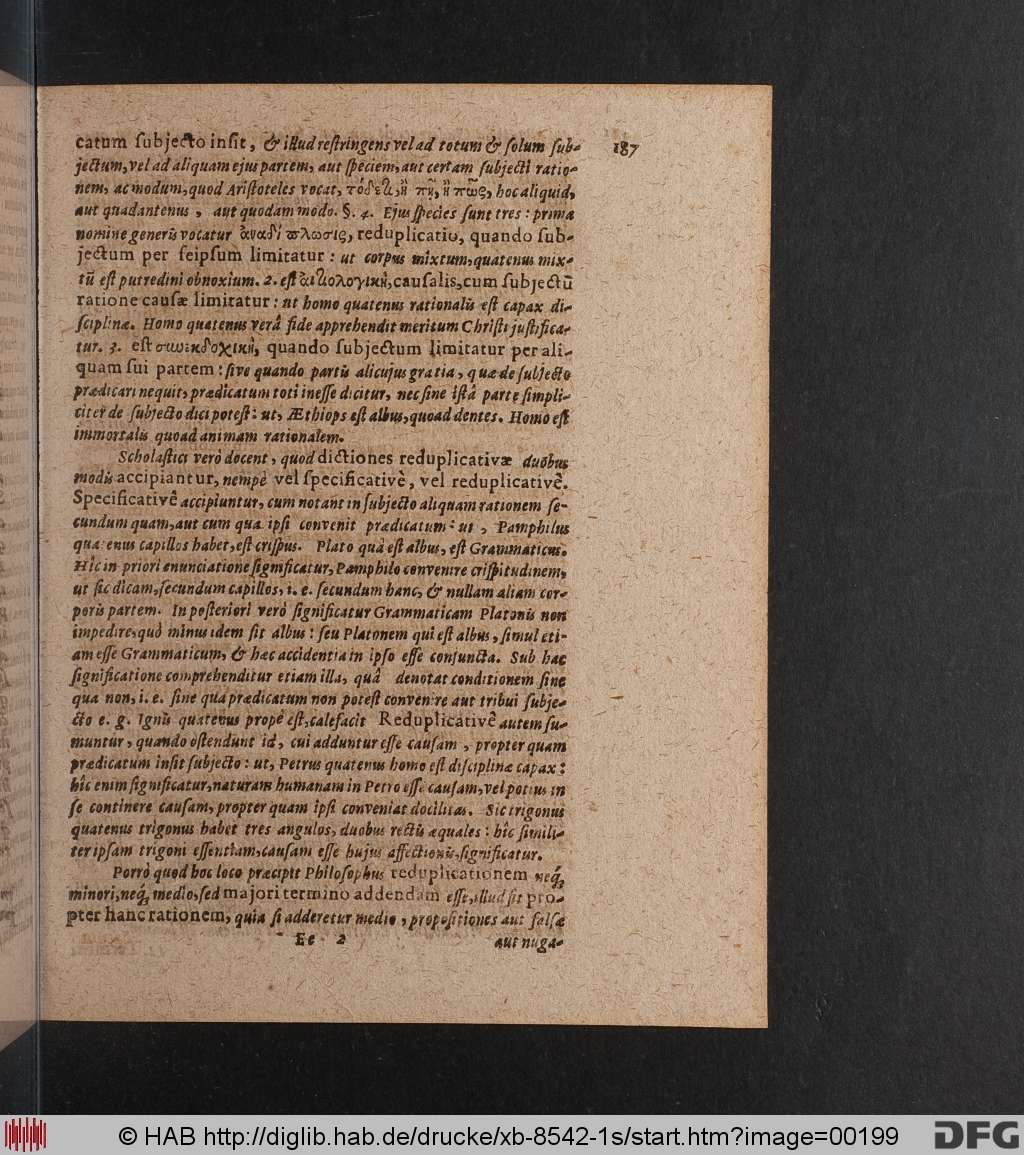 catum ſubjecto inſit, & illud reſtringens vel ad totum & ſolum ſub-
187
jectum, vel ad aliquam ejus partem, aut ſpeciem, aut certam ſubjecti ratio-
nem, ac modum, quod Ariſtoteles vocat, τόδε τι, ἢ πῆ, ἢ πῶς, hoc aliquid,
aut quadantenus, aut quodam modo. §. 4. Ejus ſpecies ſunt tres: prima
nomine generis vocatur ἀναδίπλωσις, reduplicatio, quando ſub-
jectum per ſeipſum limitatur: ut corpus mixtum, quatenus mix-
tũ eſt putredini obnoxium. 2. eſt αἰτιολογικὴ, cauſalis, cum ſubjectũ
ratione cauſæ limitatur: ut homo quatenus rationalis eſt capax di-
ſciplinæ. Homo quatenus verâ fide apprehendit meritum Chriſti juſtifica-
tur. 3. eſt συνεκδοχικὴ, quando ſubjectum limitatur per ali-
quam ſui partem: ſive quando partis alicujus gratia, quæ de ſubjecto
prædicari nequit, prædicatum toti ineſſe dicitur, nec ſine iſtâ parte ſimpli-
citer de ſubjecto dici poteſt: ut, Æthiops eſt albus, quoad dentes. Homo eſt
immortalis quoad animam rationalem.
Scholaſtici verò docent, quod dictiones reduplicativæ duobus
modis accipiantur, nempè vel ſpecificativè, vel reduplicativè.
Specificativè accipiuntur, cum notant in ſubjecto aliquam rationem ſe-
cundum quam, aut cum qua ipſi convenit prædicatum: ut, Pamphilus
quatenus capillos habet, eſt criſpus. Plato quà eſt albus, eſt Grammaticus.
Hîc in priori enunciatione ſignificatur, Pamphilo convenire criſpitudinem,
ut ſic dicam, ſecundum capillos, i. e. ſecundum hanc, & nullam aliam cor-
poris partem. In poſteriori verò ſignificatur Grammaticam Platonis non
impedire, quò minus idem ſit albus: ſeu Platonem qui eſt albus, ſimul eti-
am eſſe Grammaticum, & hæc accidentia in ipſo eſſe conjuncta. Sub hac
ſignificatione comprehenditur etiam illa, quâ denotat conditionem ſine
qua non, i. e. ſine qua prædicatum non poteſt convenire aut tribui ſubje-
cto e. g. Ignis quatenus propè eſt, calefacit Reduplicativè autem ſu-
muntur, quando oſtendunt id, cui adduntur eſſe cauſam, propter quam
prædicatum inſit ſubjecto: ut, Petrus quatenus homo eſt diſciplinæ capax:
hîc enim ſignificatur, naturam humanam in Petro eſſe cauſam, vel potius in
ſe continere cauſam, propter quam ipſi conveniat docilitas. Sic trigonus
quatenus trigonus habet tres angulos, duobus rectis æquales: hîc ſimili-
ter ipſam trigoni eſſentiam, cauſam eſſe hujus affectionis, ſignificatur.
Porrò quod hoc loco præcipit Philoſophus reduplicationem neq́;
minori, neq́; medio, ſed majori termino addendam eſſe, illud ſit pro-
pter hanc rationem, quia ſi adderetur medio, propoſitiones aut falſæ
Ee 2
aut nuga-
© HAB http://diglib.hab.de/drucke/xb-8542-1s/start.htm?image=00199
DFG